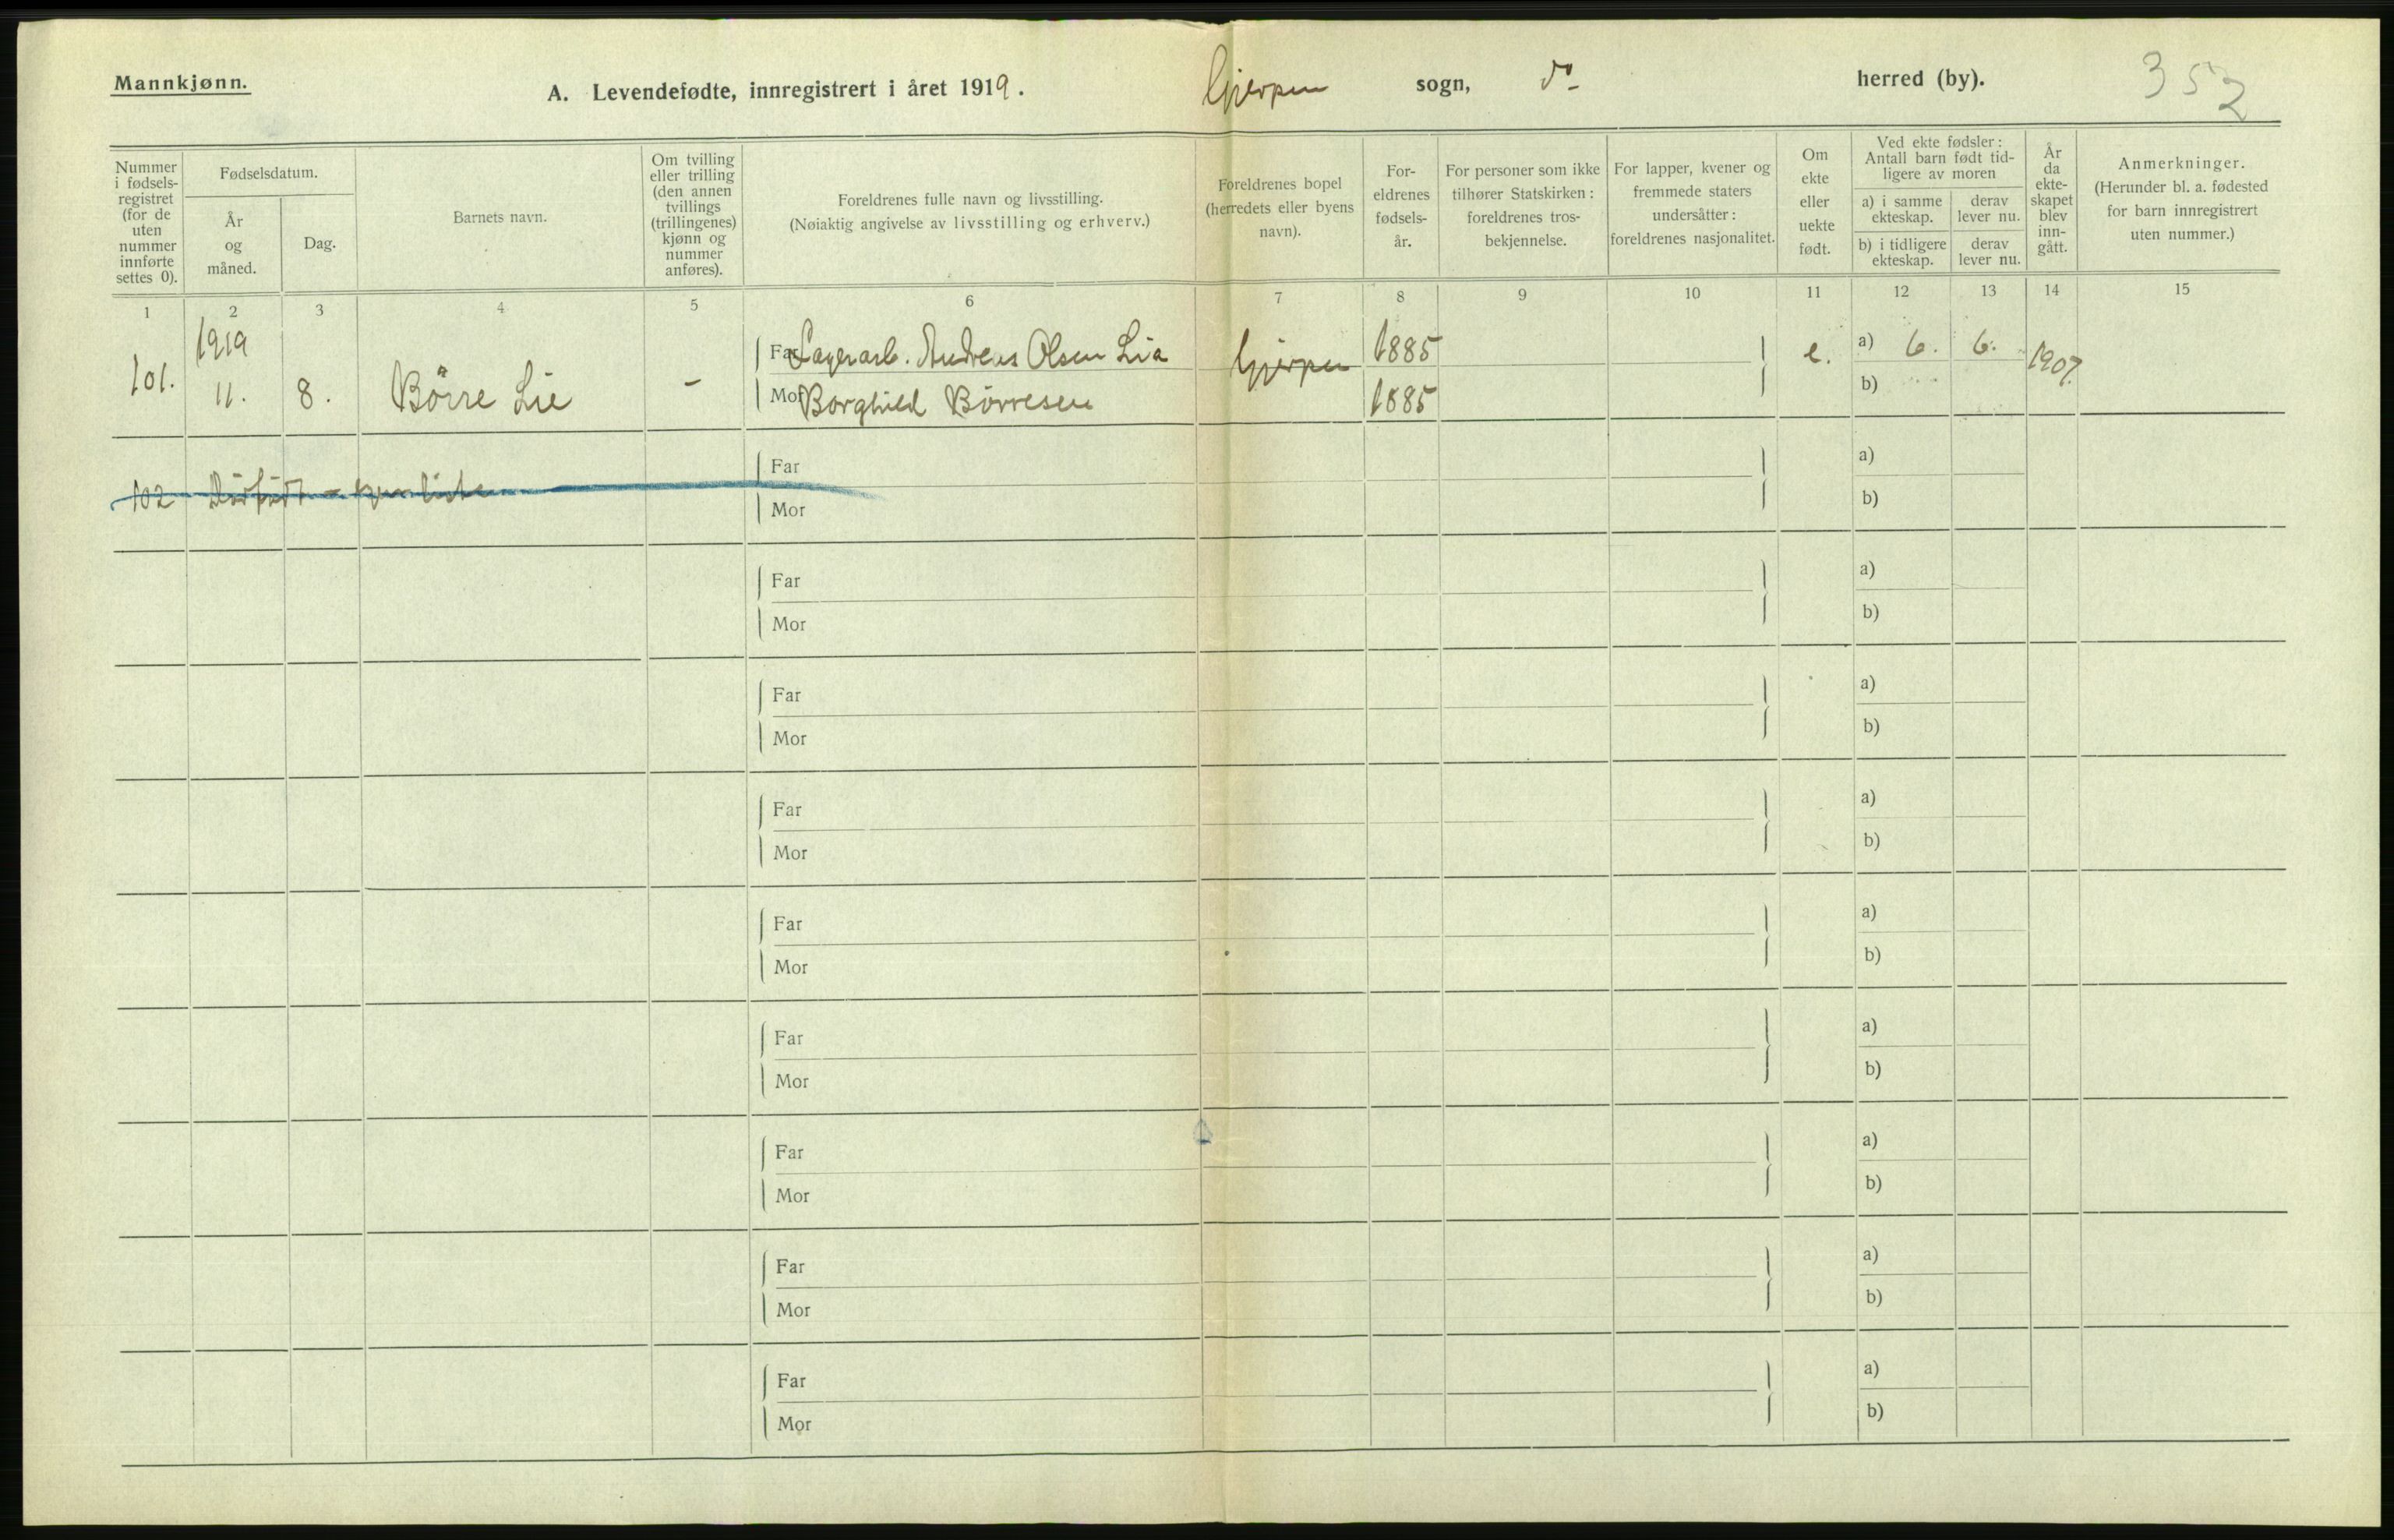 Mannkjønn.
A. Levendefødte, innregistrert i året 1919.
Gjerpen sogn, do herred (by).
352
Nummer i fødsels-registret (for de uten nummer innførte settes 0).
Fødselsdatum.
År og måned.
Dag.
Barnets navn.
Om tvilling eller trilling (den annen tvillings (trillingenes) kjønn og nummer anføres).
Foreldrenes fulle navn og livsstilling.
(Nøiaktig angivelse av livsstilling og erhverv.)
Foreldrenes bopel (herredets eller byens navn).
For-eldrenes fødsels-år.
For personer som ikke tilhører Statskirken: foreldrenes tros-bekjennelse.
For lapper, kvener og fremmede staters undersåtter: foreldrenes nasjonalitet.
Om ekte eller uekte født.
Ved ekte fødsler: Antall barn født tid-ligere av moren
a) i samme ekteskap.
derav lever nu.
b) i tidligere ekteskap.
derav lever nu.
År da ekte-skapet blev inn-gått.
Anmerkninger.
(Herunder bl. a. fødested for barn innregistrert uten nummer.)
1 2 3 4 5 6 7 8 9 10 11 12 13 14 15
1919
101. 11. 8. Börre Lie –
Far Lagerarb. Andreas Olsen Lia Gjerpen 1885 e. a) 6. 6. 1907.
Mor Borghild Börresen 1885 b)
102 Dödfödt
Far a)
Mor b)
Far a)
Mor b)
Far a)
Mor b)
Far a)
Mor b)
Far a)
Mor b)
Far a)
Mor b)
Far a)
Mor b)
Far a)
Mor b)
Far a)
Mor b)